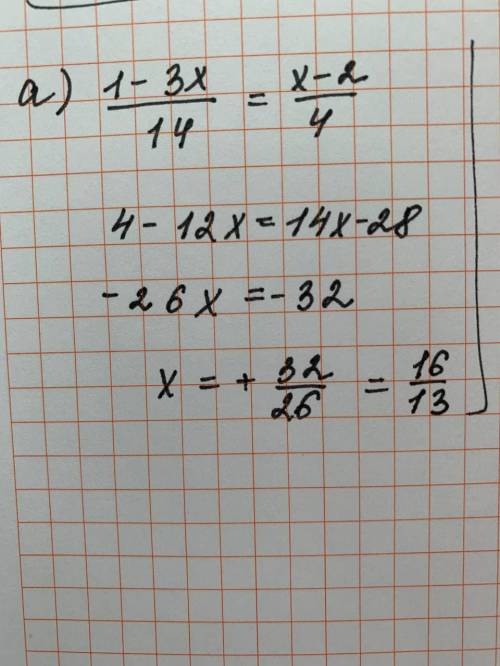 a) (1 - 3x)/14 = (x - 2)/4
4 - 12x = 14x - 28
-26x = -32
x = + 32/26 = 16/13